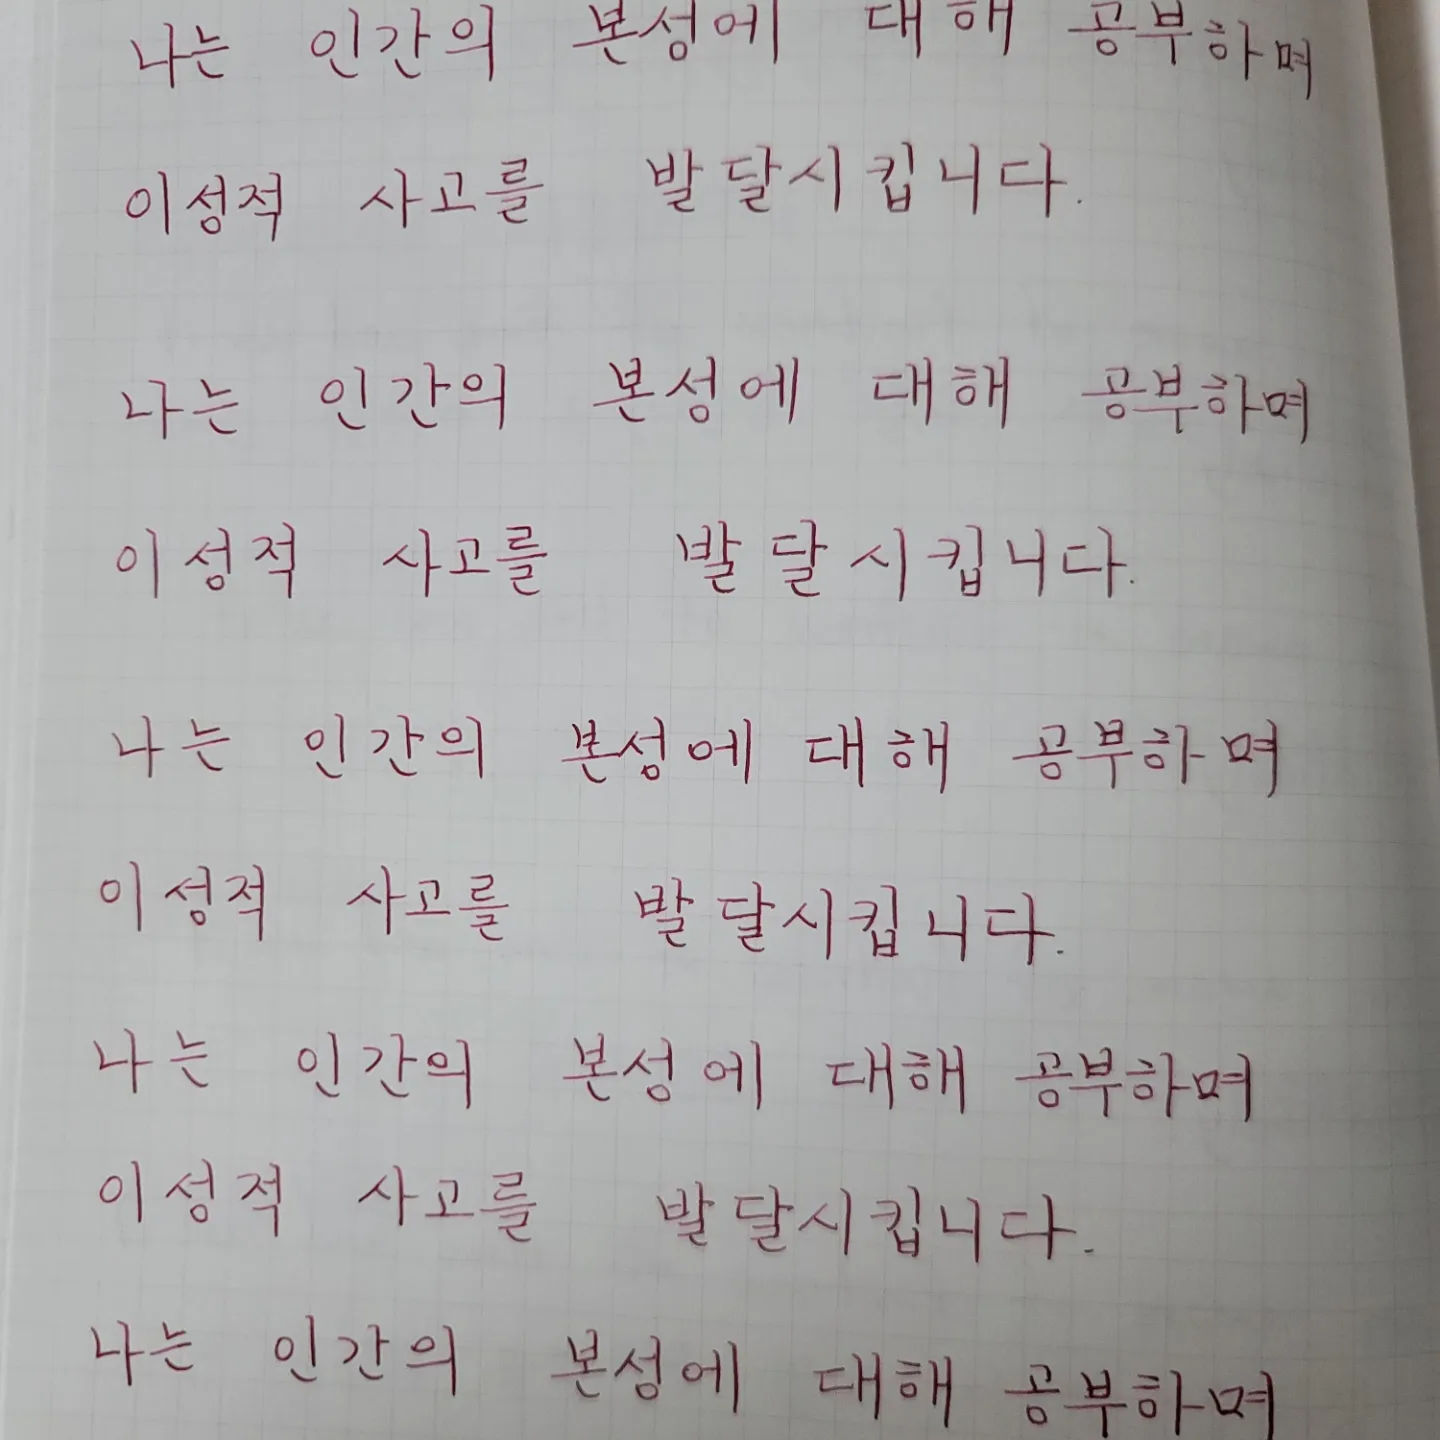 나는 인간의 본성에 대해 공부하며
이성적 사고를 발달시킵니다.
나는 인간의 본성에 대해 공부하며
이성적 사고를 발달시킵니다.
나는 인간의 본성에 대해 공부하며
이성적 사고를 발달시킵니다.
나는 인간의 본성에 대해 공부하며
이성적 사고를 발달시킵니다.
나는 인간의 본성에 대해 공부하며